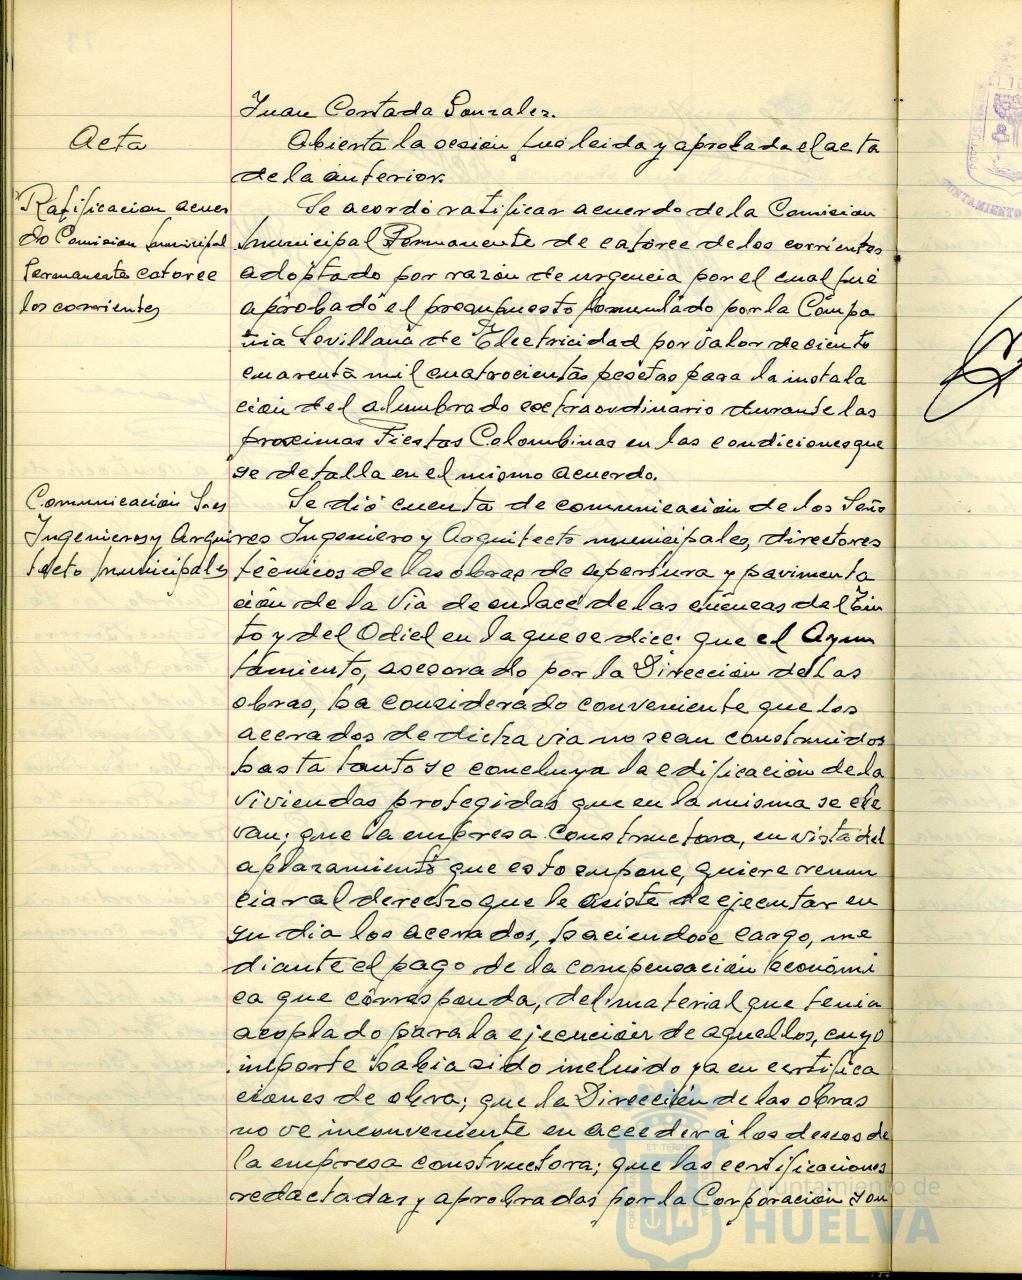 Juan Contada Gonzalez.
Acta
Abierta la sesión, fué leida y aprobada el acta
de la anterior.
Ratificacion acuer
do Comision municipal
Permanente catorce
los corrientes
Se acordó ratificar acuerdo de la Comision
municipal Permanente de catorce de los corrientes
adoptado por razón de urgencia por el cual fué
aprobado el presupuesto formulado por la Compa
ñia Sevillana de Electricidad por valor de ciento
cuarenta mil cuatrocientas pesetas para la instala
ción del alumbrado extraordinario durante las
proximas Fiestas Colombinas en las condiciones que
se detalla en el mismo acuerdo.
Comunicación Sres
Ingenieros y Arqui
tecto municipales
Se dió cuenta de comunicación de los Seño
res Ingeniero y Arquitecto municipales, directores
técnicos de las obras de apertura y pavimenta
ción de la Via de enlace de las cuencas del Tin
to y del Odiel en la que se dice: que el Ayun
tamiento, asesorado por la Dirección de las
obras, ha considerado conveniente que los
acerados de dicha via no sean construidos
hasta tanto se concluya la edificación de la
viviendas protegidas que en la misma se ele
van; que la empresa constructora, en vista del
aplazamiento que esto supone, quiere renun
ciar al derecho que le asiste de ejecutar en
su dia los acerados, haciendose cargo, me
diante el pago de la compensación económi
ca que corresponda, del material que tenia
acoplado para la ejecución de aquellos, cuyo
importe habia sido incluido ya en certifica
ciones de obra; que la Dirección de las obras
no ve inconveniente en acceder á los deseos de
la empresa constructora; que las certificaciones
redactadas y aprobadas por la Corporación son
Ayuntamiento de
HUELVA